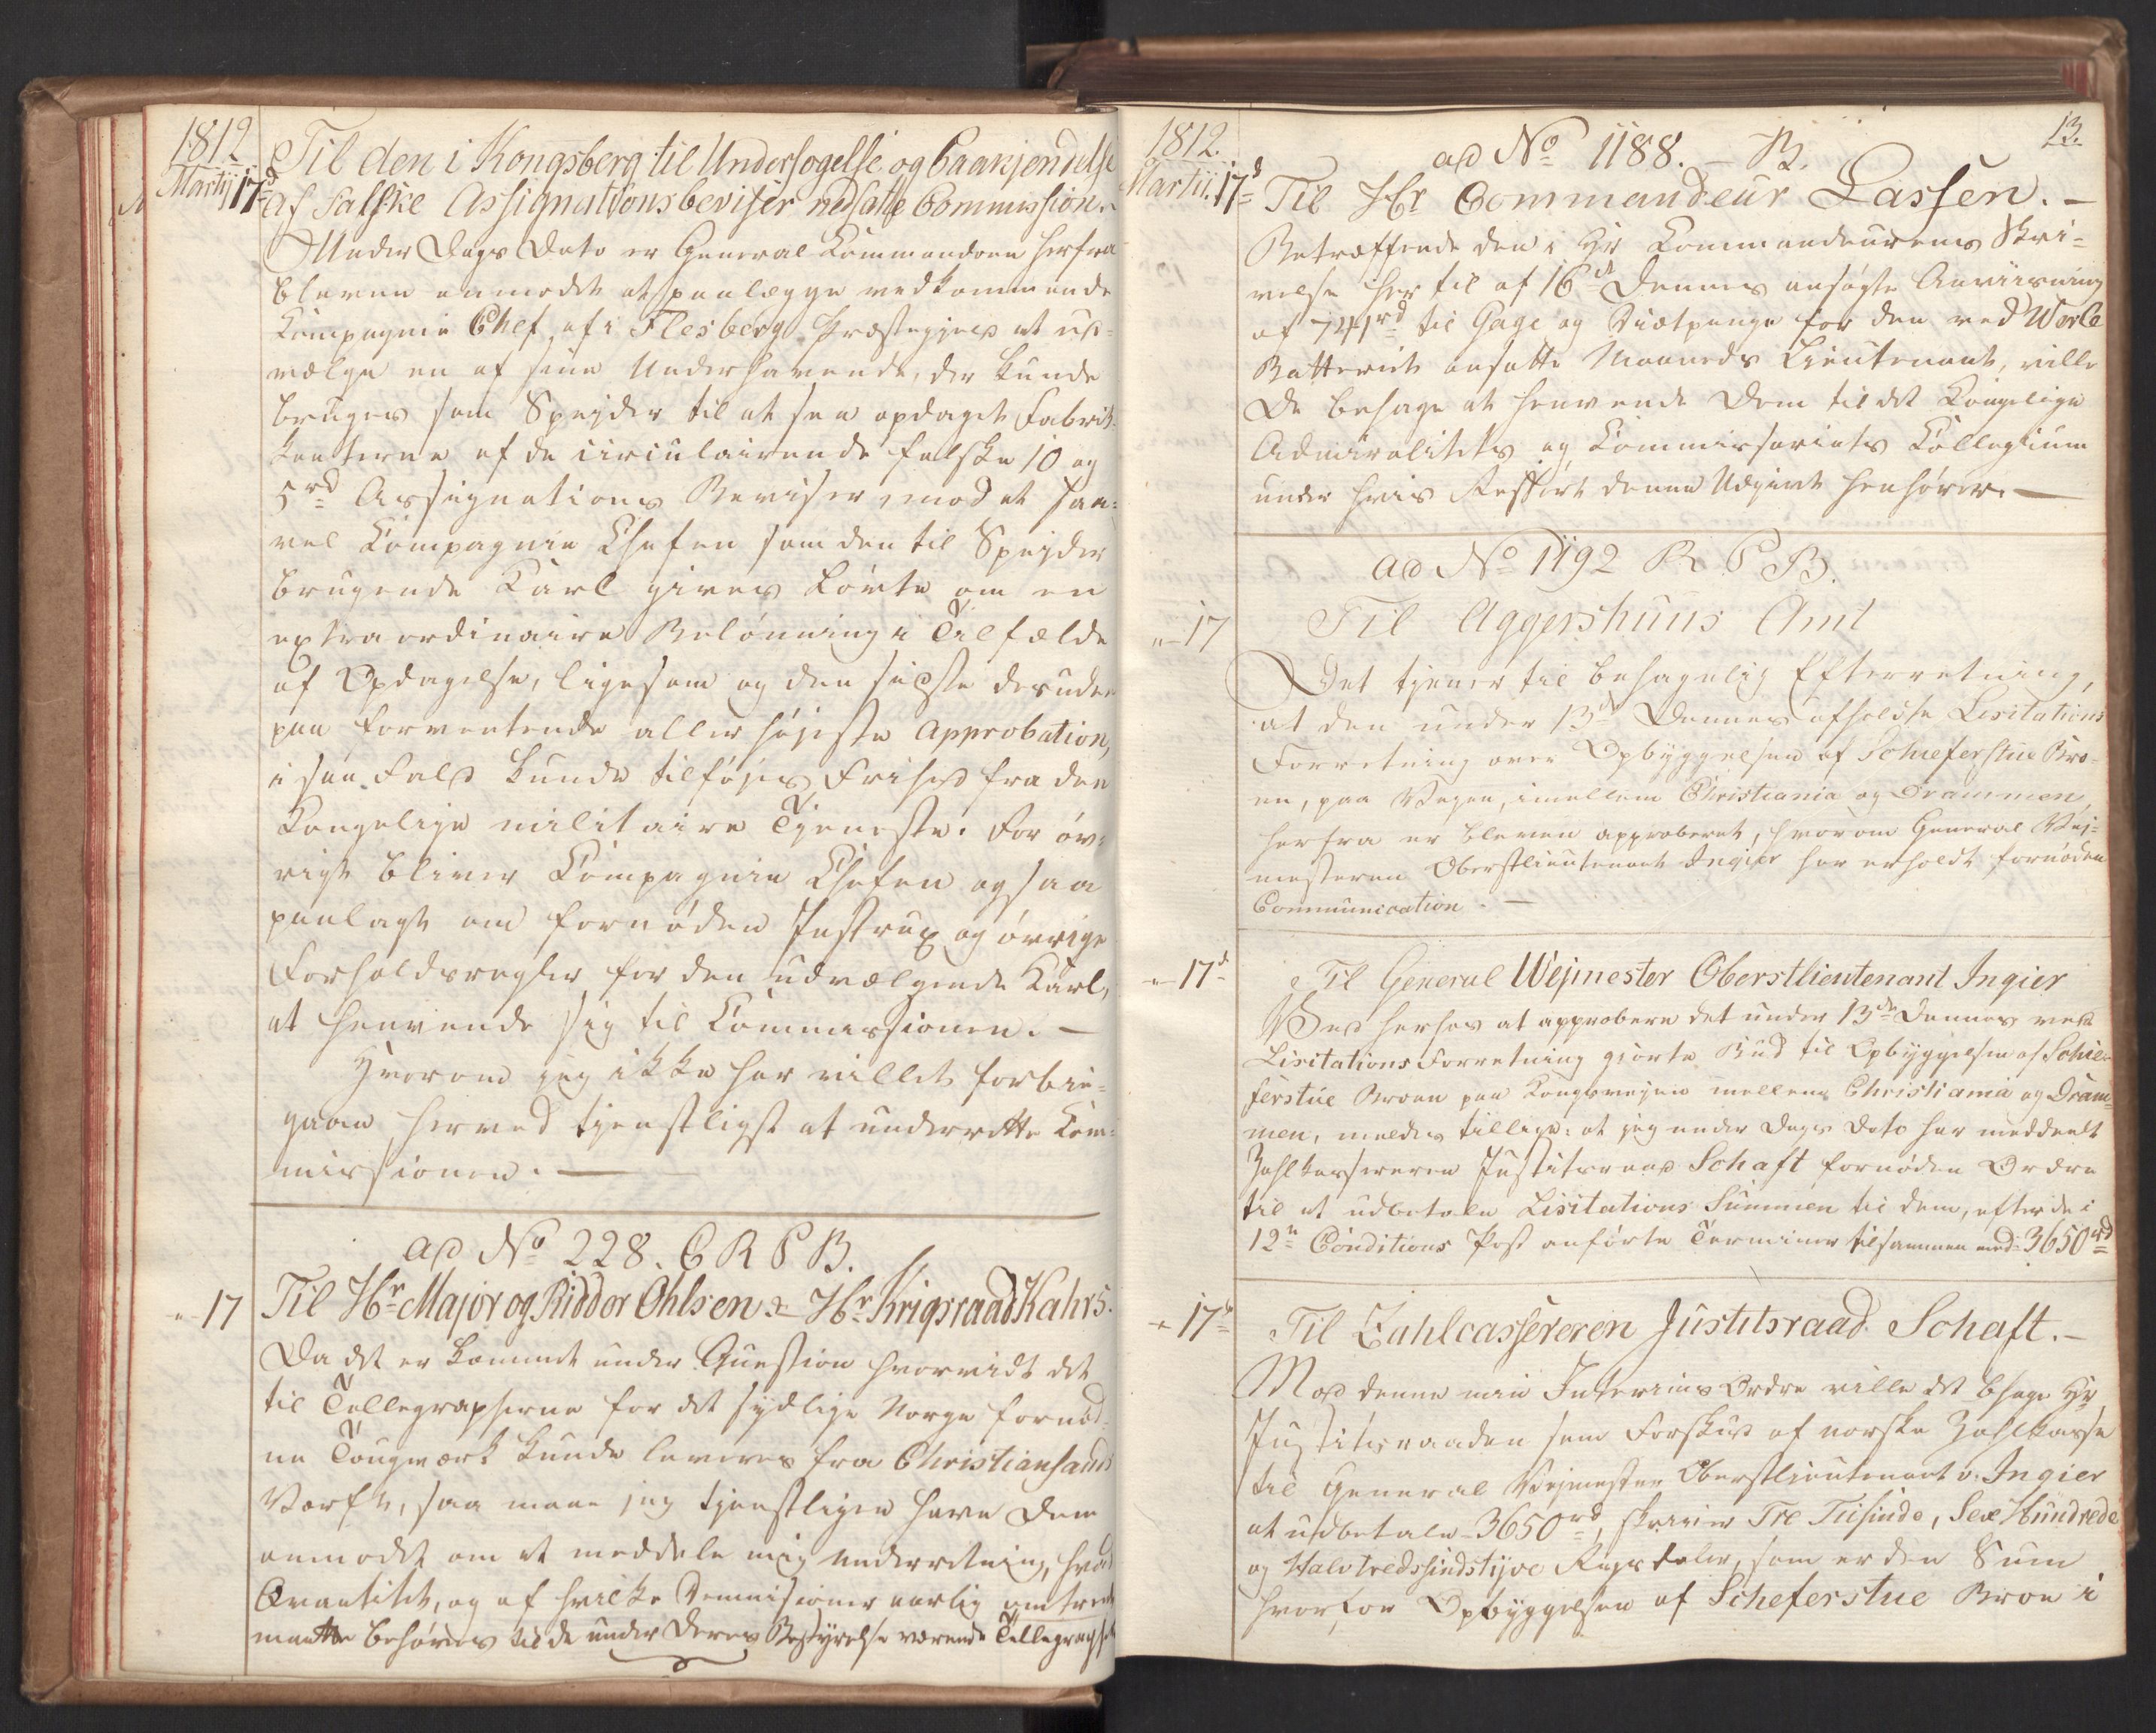 1812
Martij 17d
Til den i Kongsberg til Undersøgelse og Paakjendelse
af falske Assignationsbeviser nedsatte Commission.
Under Dags Dato er General Commandoen herfra
bleven anmodet at paalægge vedkommende
Compagnie Chef af i Flesberg Præstegjeld at ud-
vælge en af sine Underhavende, der kunde
bruges som Spejder til at faa opdaget Fabri-
kanterne af de circulairende falske 10 og
5rd Assignations Beviser, mod at saa-
vel Compagnie Chefen som den til Spejder
brugende Karl gives Løvte om en
extraordinaire Belønning i Tilfælde
af Opdagelse, ligesom og den sidste desuden
paa forventende allerhøjeste Approbation,
i saa Fald kunde tilføjes Frihed fra den
Kongelige militaire Tjeneste. For øv-
rigt bliver Compagnie Chefen ogsaa
paalagt om fornøden Instrux og øvrige
Forholdsregler for den udvælgende Karl,
at henvende sig til Commissionen. —
Hvorom jeg ikke har villet forbie-
gaae herved tjenstligst at underrette Com-
missionen. —
ad No 228. C R P B.
"- 17
Til Hr Major og Ridder Ohlsen & Hr Krigsraad Kahrs.
Da det er kommet under Question hvorvidt det
til Tellegrapherne for det sydlige Norge fornød-
ne Tougværk kunde leveres fra Christiansands
Værft, saa maae jeg tjenstligen have Dem
anmodet om at meddele mig Underretning, hvad
Qvantitet, og af hvilke Demensioner aarlig omtrent
maatte behøves til de under Deres Bestyrelse værende Tellegrapher
13.
1812.
Martii. 17d
ad No 1188. - B.
Til Hr Commandeur Lassen. —
Betræffende den i Hr Commandeurens Skri-
velse her til af 16de Dennes ansøgte Anviisning
af 741rd til Gage og Diætpenge for den ved Werle
Batteriet ansatte Maaneds Lieutenant, ville
De behage at henvende Dem til det Kongelige
Admiralitets og Commissariats Collegium
under hvis Ressort denne Udgivt henhører. —
ad No 1192 R P B.
"- 17
Til Aggershuus Amt
Det tjener til behagelig Efterretning,
at den under 13de Dennes afholdte Lisitations
Forretning over Opbyggelsen af Schieferstue Bro-
en, paa Vejen, imellem Christiania og Drammen,
herfra er bleven approberet, hvorom General Vej-
mesteren Oberstlieutenant Ingier har erholdt fornøden
Communication. —
"- 17d
Til General Wejmester Oberstlieutenant Ingier
Ved herhos at approbere det under 13de Dennes ved
Lisitations Forretning gjorte Bud til Opbyggelsen af Schie-
ferstue Broen paa Kongevejen mellem Christiania og Dram-
men, meldes tillige: at jeg under Dags Dato har meddeelt
Zahlkassereren Justitsraad Schaft fornøden Ordre
til at udbetale Lisitations Summen til dem, efter de i
12te Conditions Post anførte Terminer tilsammen med 3650rd
"- 17de
Til Zahlcassereren Justitsraad Schaft. —
Mod denne min Interims Ordre ville det behage Hr
Justitsraaden som Forskud af norske Zahlkasse
til General Vejmester Oberstlieutenant v. Ingier
at udbetale 3650rd, skriver Tre Tusinde, Sex Hundrede
og Halvtredssindstyve Rigsdaler, som er den Sum
hvorfor Opbyggelsen af Scheferstue Broe i